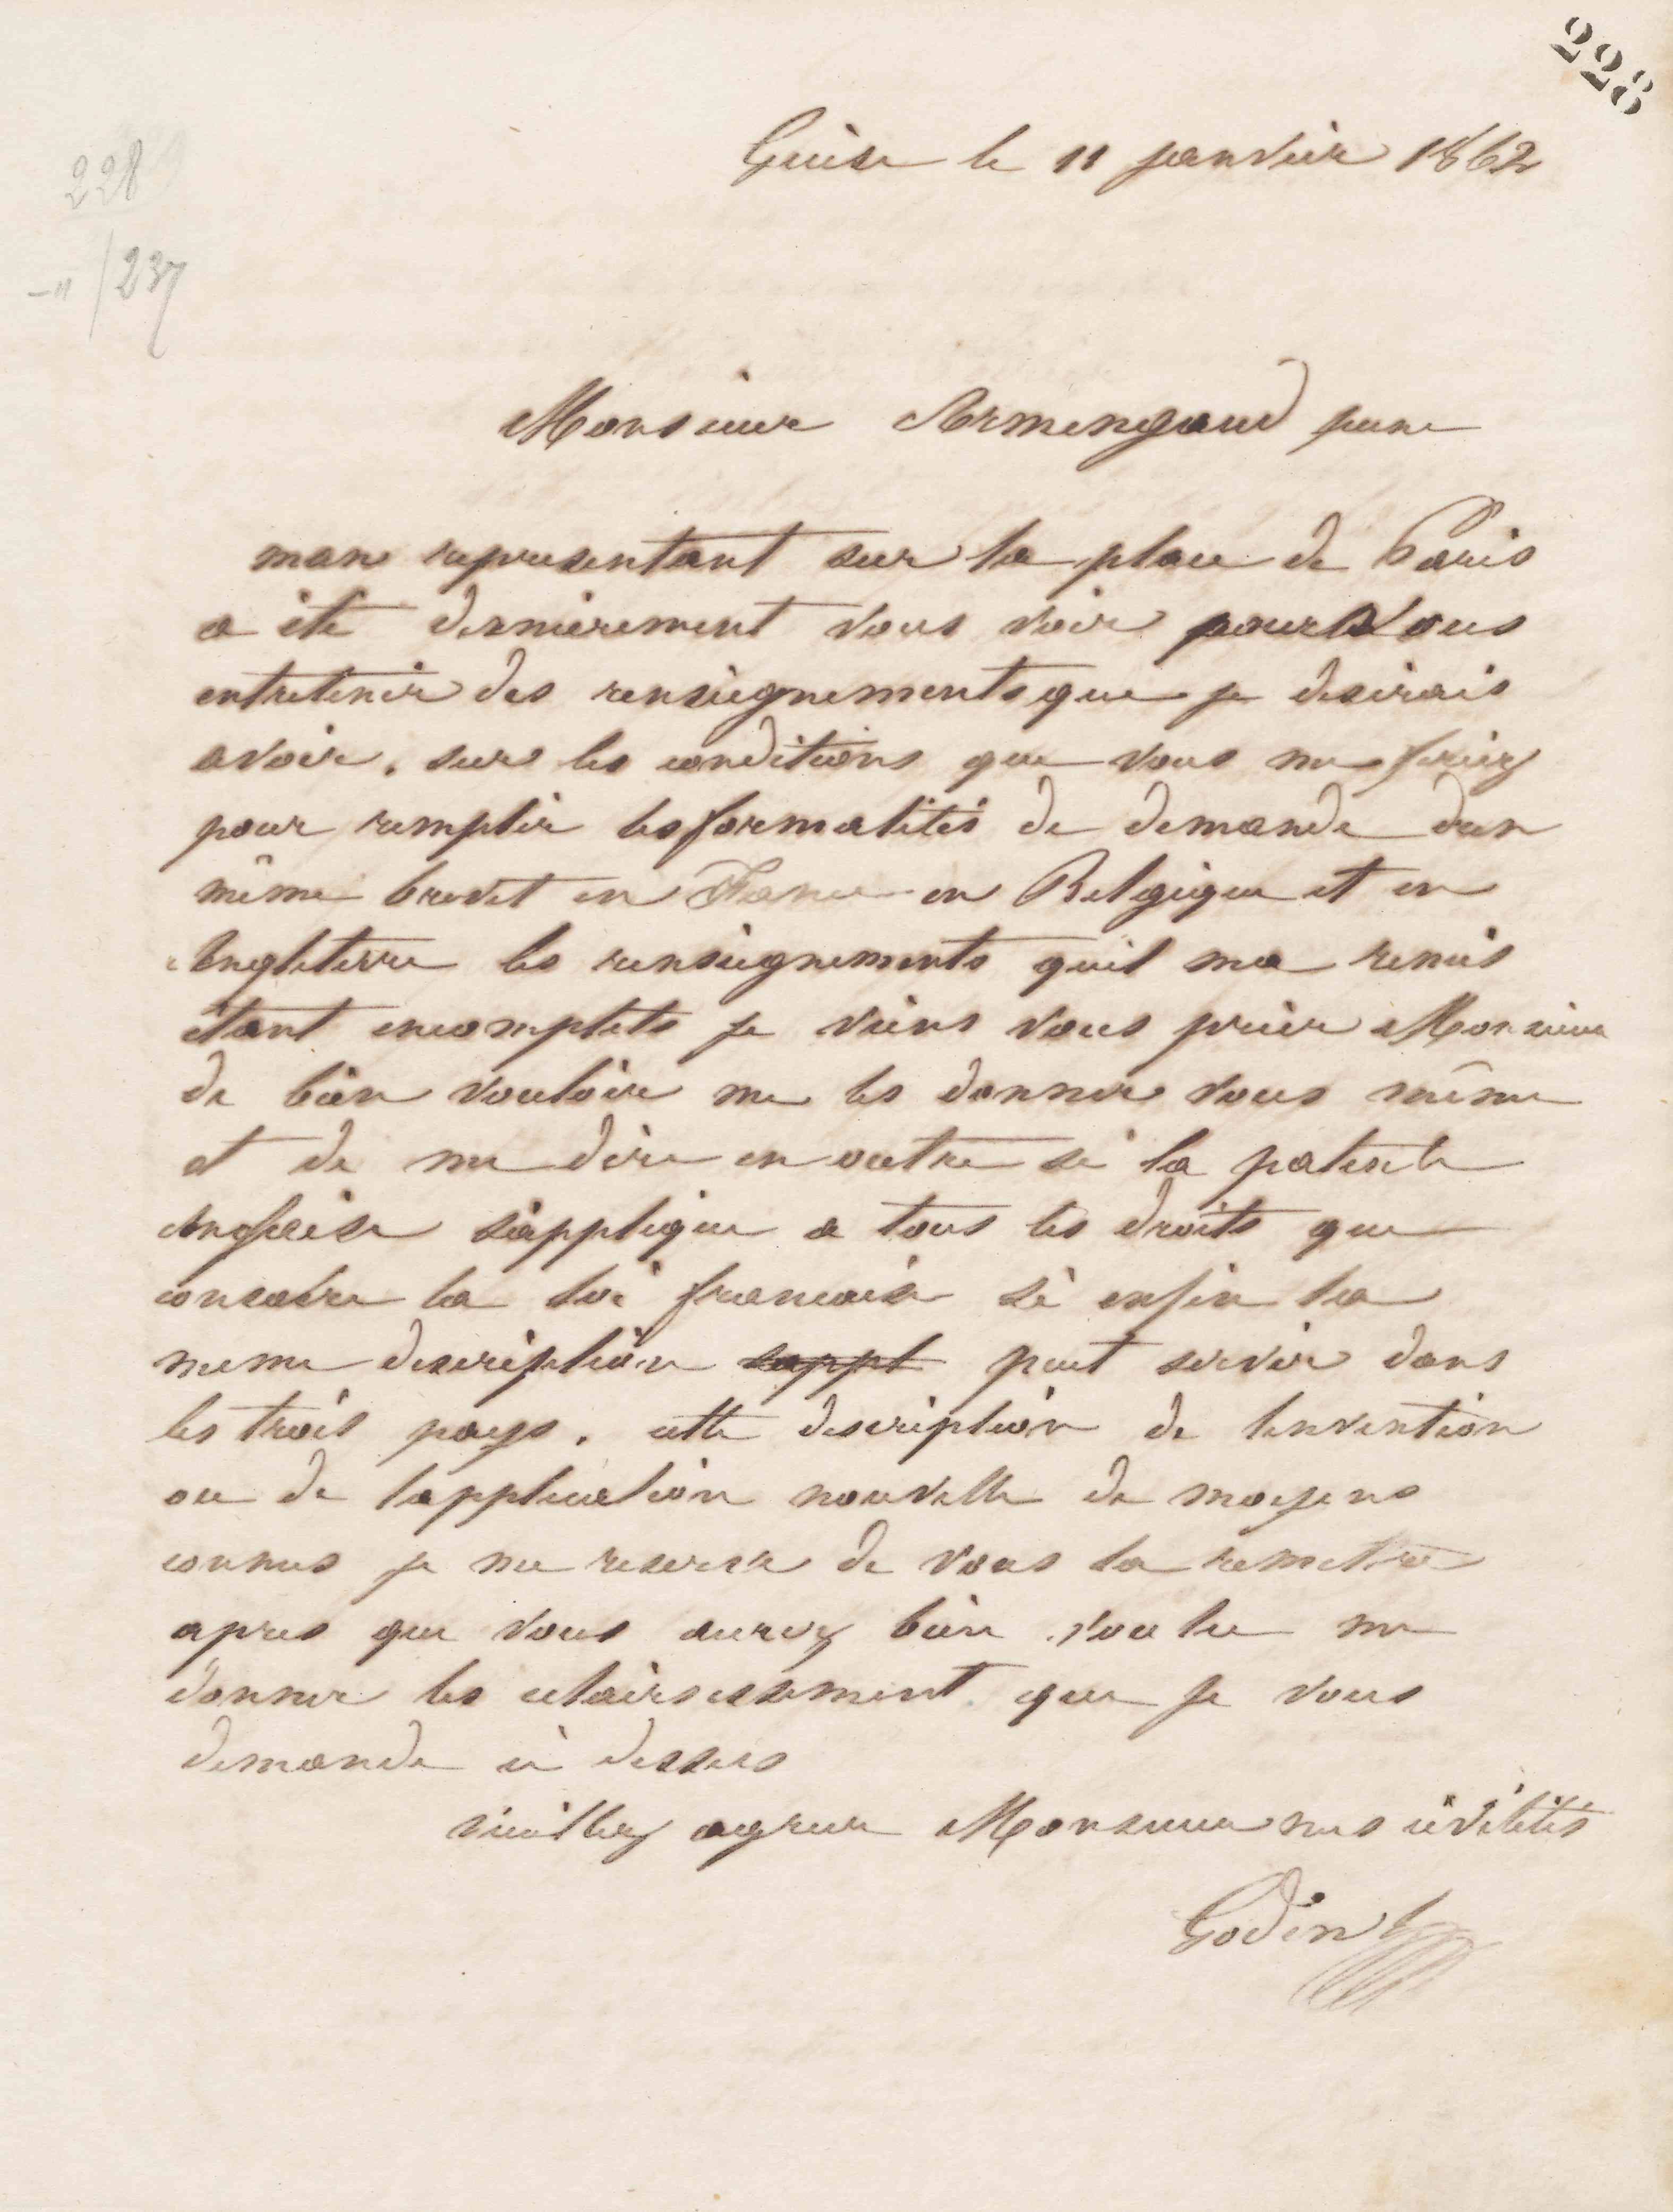 228
Guise le 11 janvier 1862
228
-" /237
Monsieur Armengaud jeune
mon representant sur la place de Paris
a été dernièrement vous voir pour vous
entretenir des renseignements que je desirais
avoir. sur les conditions que vous me feriez
pour remplir les formalités de demande dun
même brevet en France en Belgique et en
Angleterre les renseignements quil ma remis
étant incomplets je viens vous prier Monsieur
de bien vouloir me les donner vous même
et de me dire en outre si la patente
Anglaise s'applique a tous les droits que
consacre la loi francaise si enfin la
meme description sappl peut servir dans
les trois pays. cette description de linvention
ou de lapplication nouvelle de moyens
connus je me reserve de vous la remettre
apres que vous aurez bien voulu me
donner les eclaircissement que je vous
demande ci dessus
veuillez agreer Monsieur mes civilités
Godin